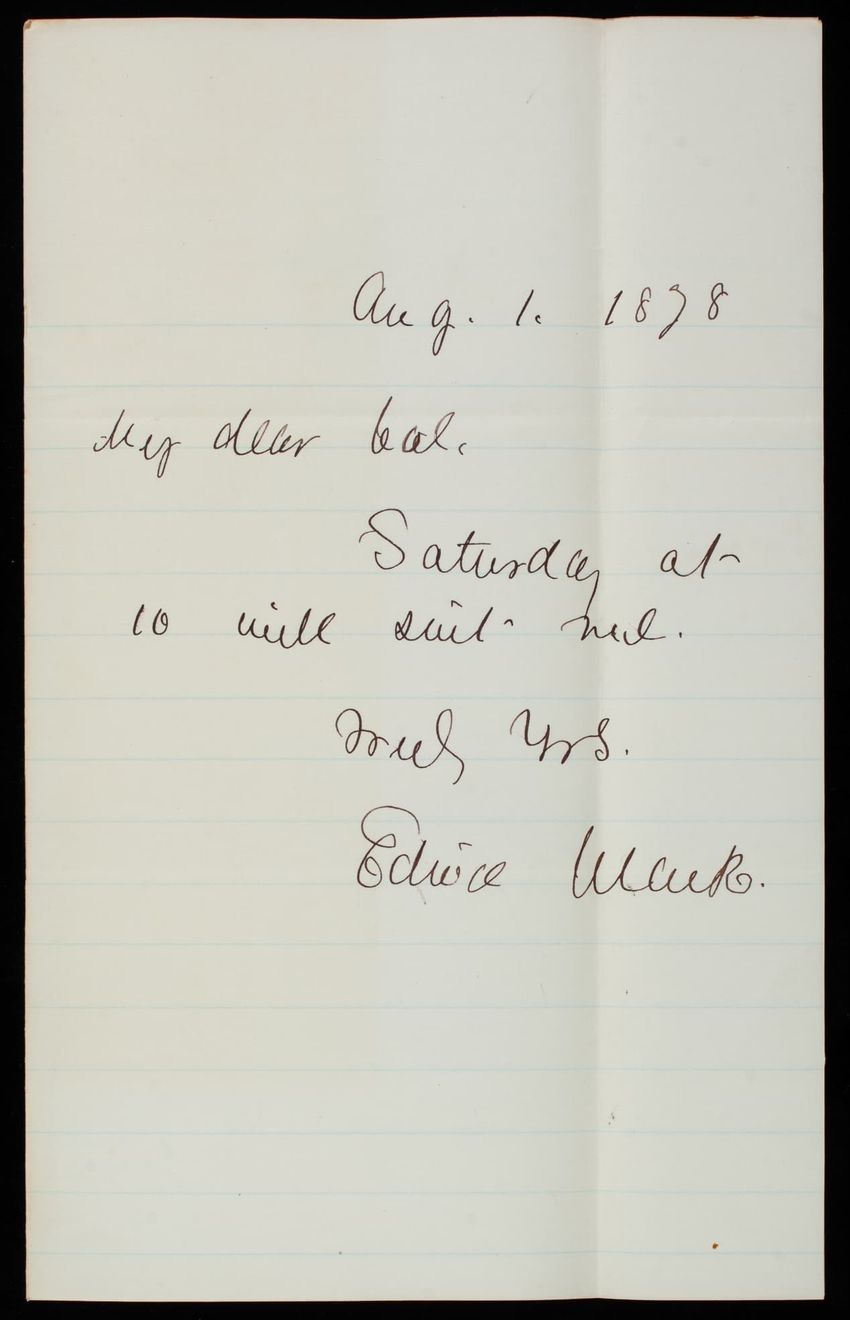 Aug. 1. 1878
My dear Col.
Saturday at
10 will suit me.
Truly Yrs.
Clark.